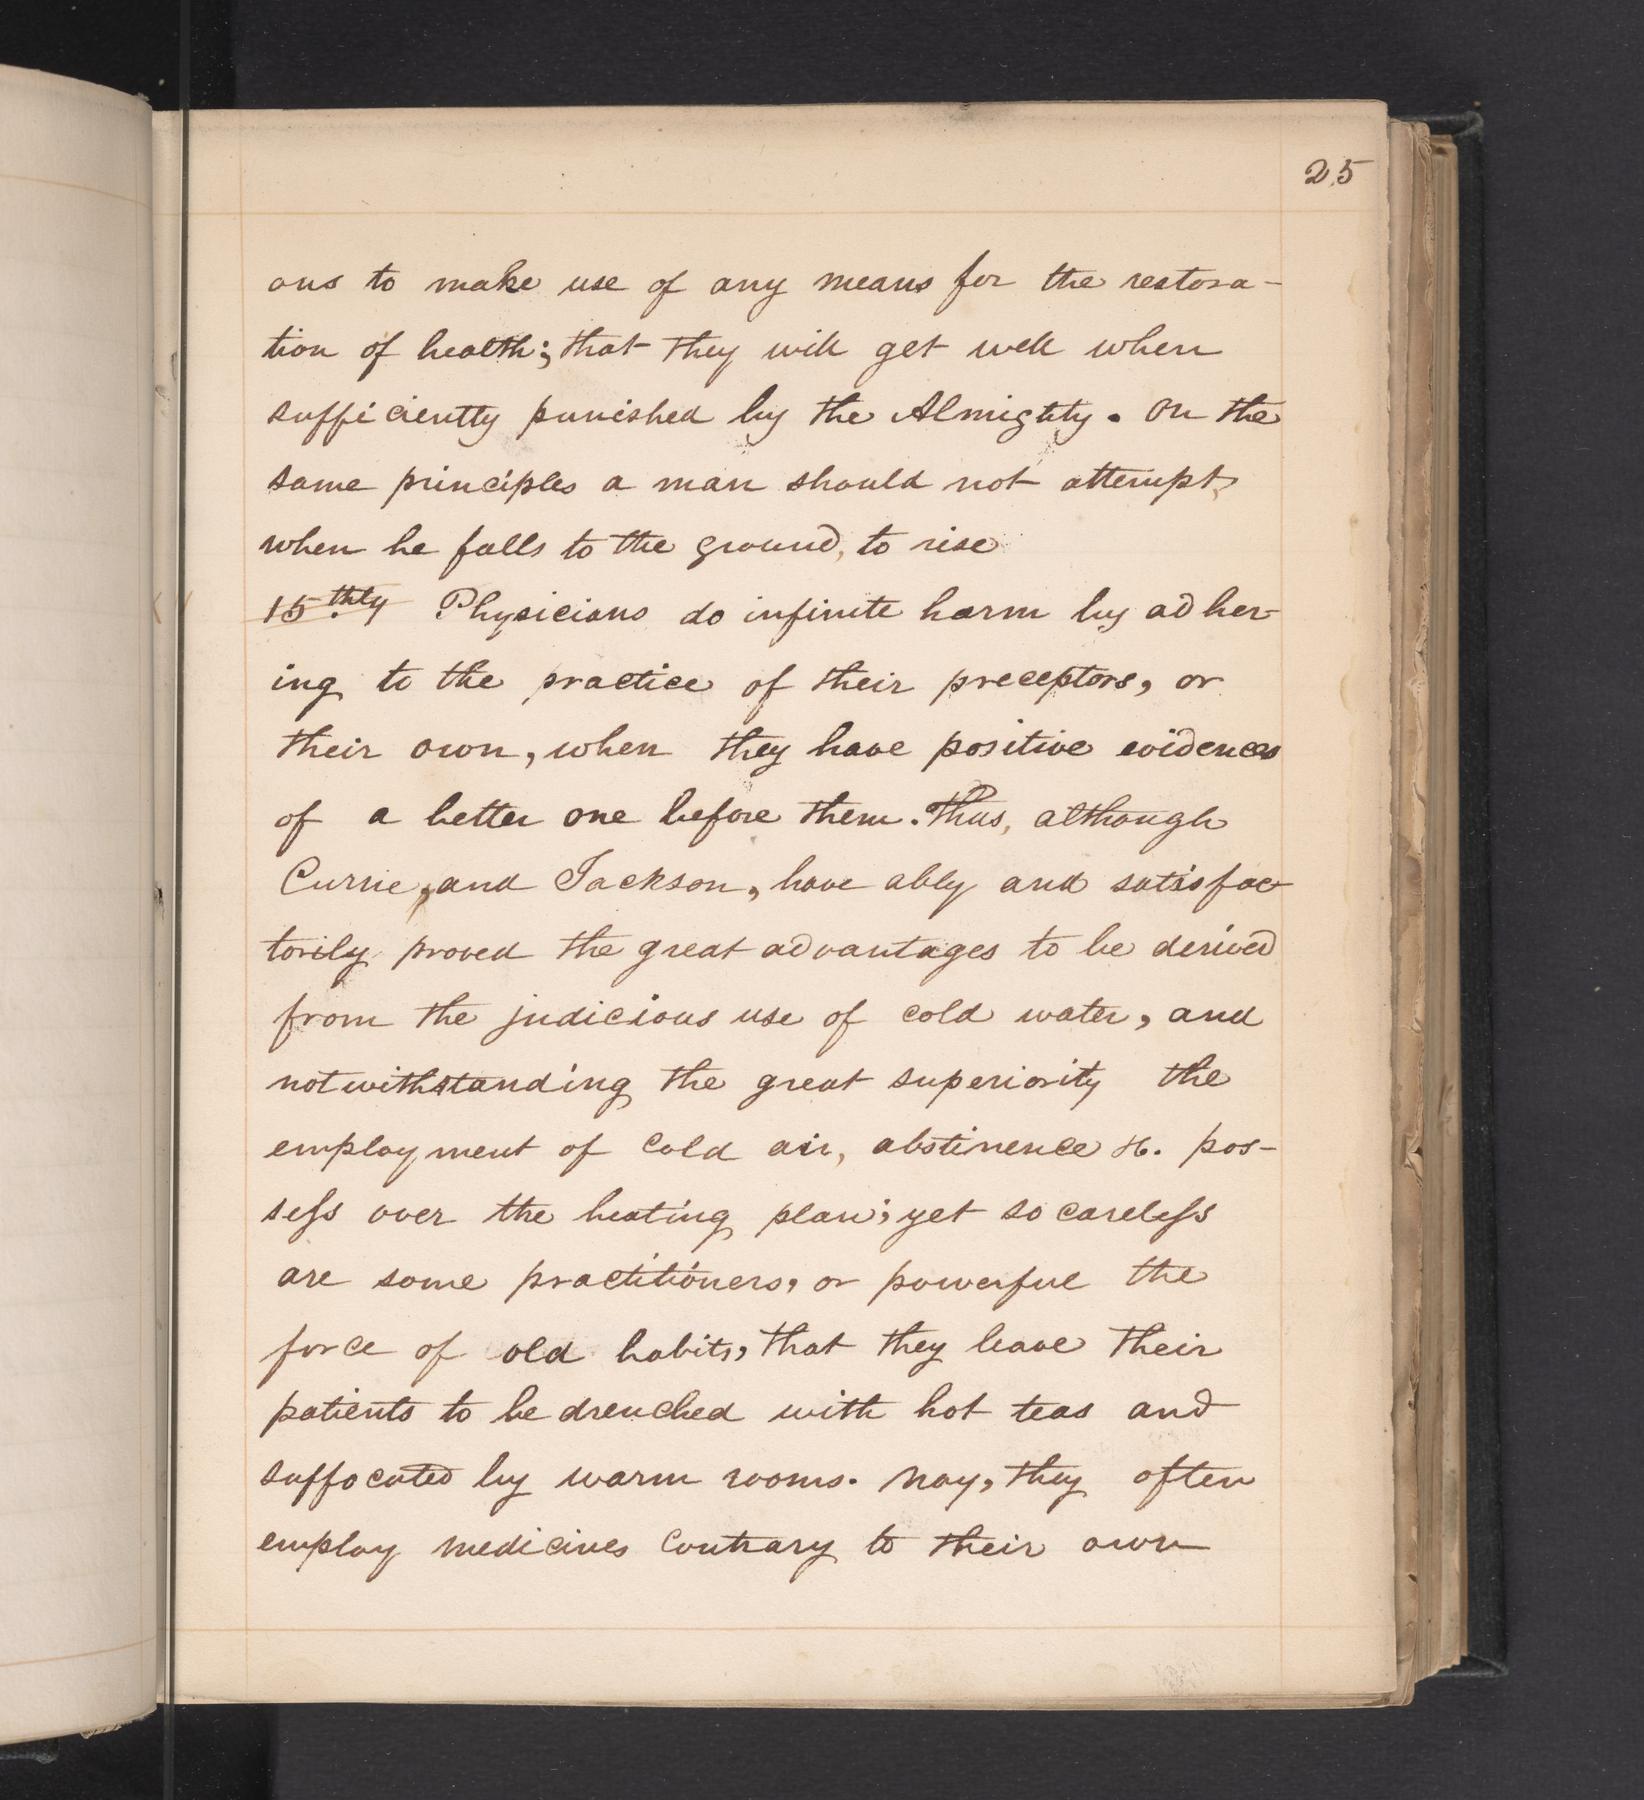 25
ous to make use of any means for the restora-
tion of health; that they will get well when
sufficiently punished by the Almighty. On the
same principles a man should not attempt,
when he falls to the ground, to rise
15thly Physicians do infinite harm by adher-
ing to the practice of their preceptors, or
their own, when they have positive evidences
of a better one before them. Thus, although
Currie, and Jackson, have ably and satisfac-
torily proved the great advantages to be derived
from the judicious use of cold water, and
notwithstanding the great superiority the
employment of cold air, abstinence &c. pos-
sess over the heating plan; yet so careless
are some practitioners, or powerful the
force of old habits, that they leave their
patients to be drenched with hot teas and
suffocated by warm rooms. Nay, they often
employ medicines contrary to their own